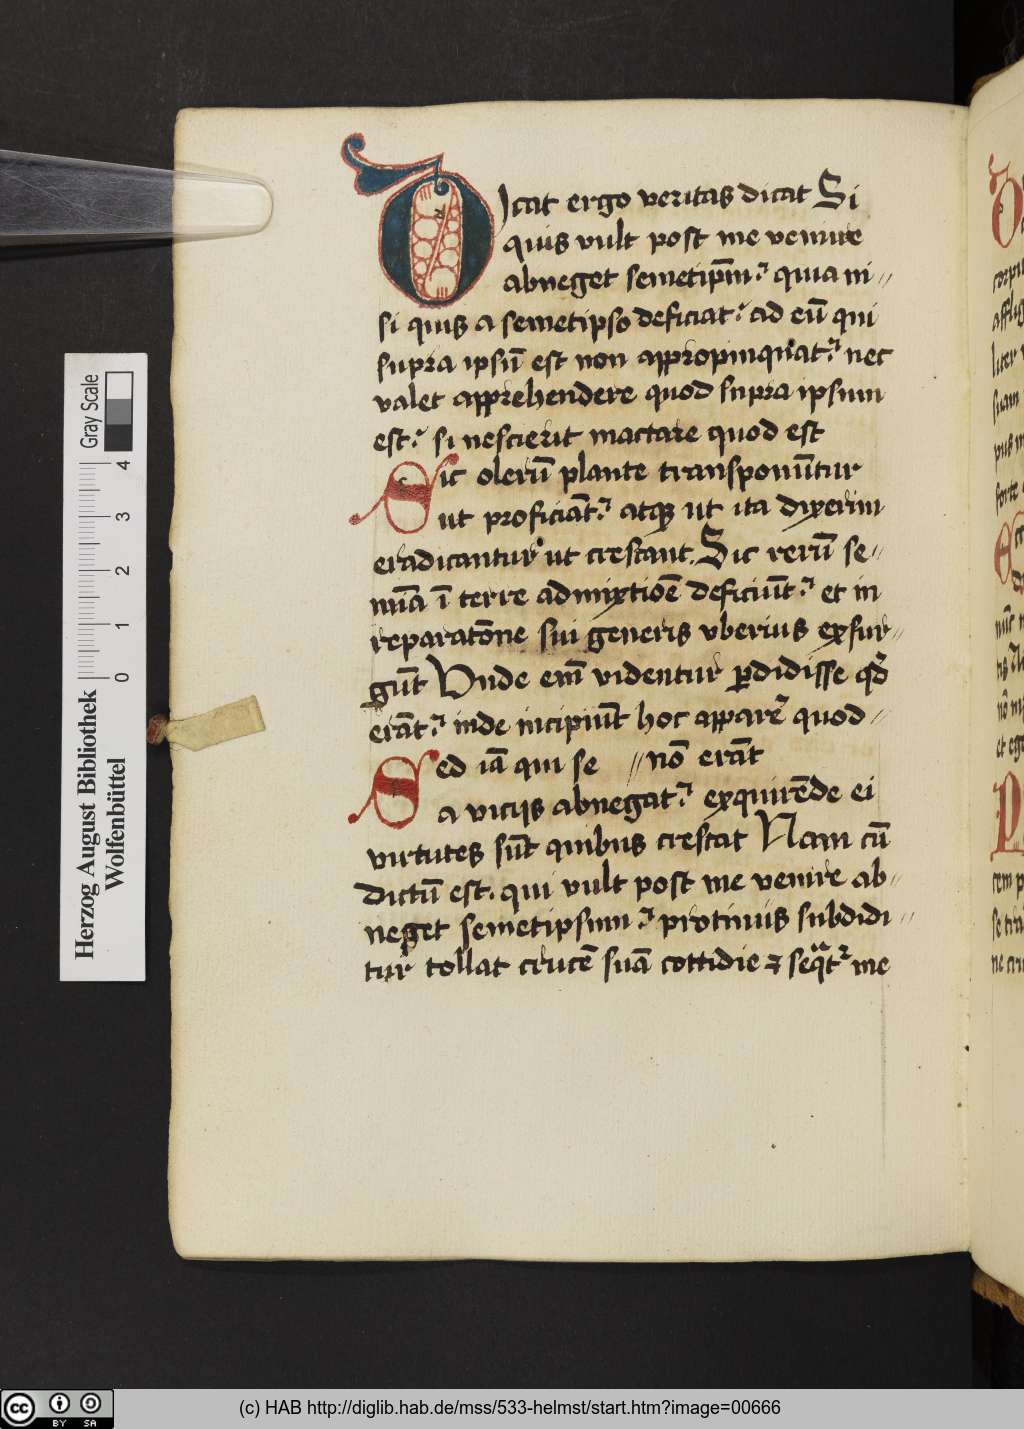 Dicat ergo veritas dicat Si
quis vult post me venire
abneget semetip̅m quia ni
si quis a semetipso deficiat ad eū qui
supra ipsū est non appropinquat nec
valet apprehendere quod supra ipsum
est si nescierit mactare quod est
Sic olerū plante transponūtur
ut proficiāt atqꝫ ut ita dixerim
eradicantur ut crescant. Sic rerū se
mīa ī terre admixtiōe deficiūt et in
reparatōne sui generis vberius exsur
gūt Vnde em̄ videntur ꝑdidisse qd̓
erāt inde incipiūt hoc apparē quod
Sed iā qui se nō erāt
a vicijs abnegat exquirēde ei
virtutes sūt quibus crescat Nam cū
dictū est. qui vult post me venire ab
neget semetipsum protinus subdidi
tur tollat crucē suā cottidie ⁊ seqᷓt᷑ me
Herzog August Bibliothek
Wolfenbüttel
0 1 2 3 4
Gray Scale
cc BY SA
(c) HAB http://diglib.hab.de/mss/533-helmst/start.htm?image=00666